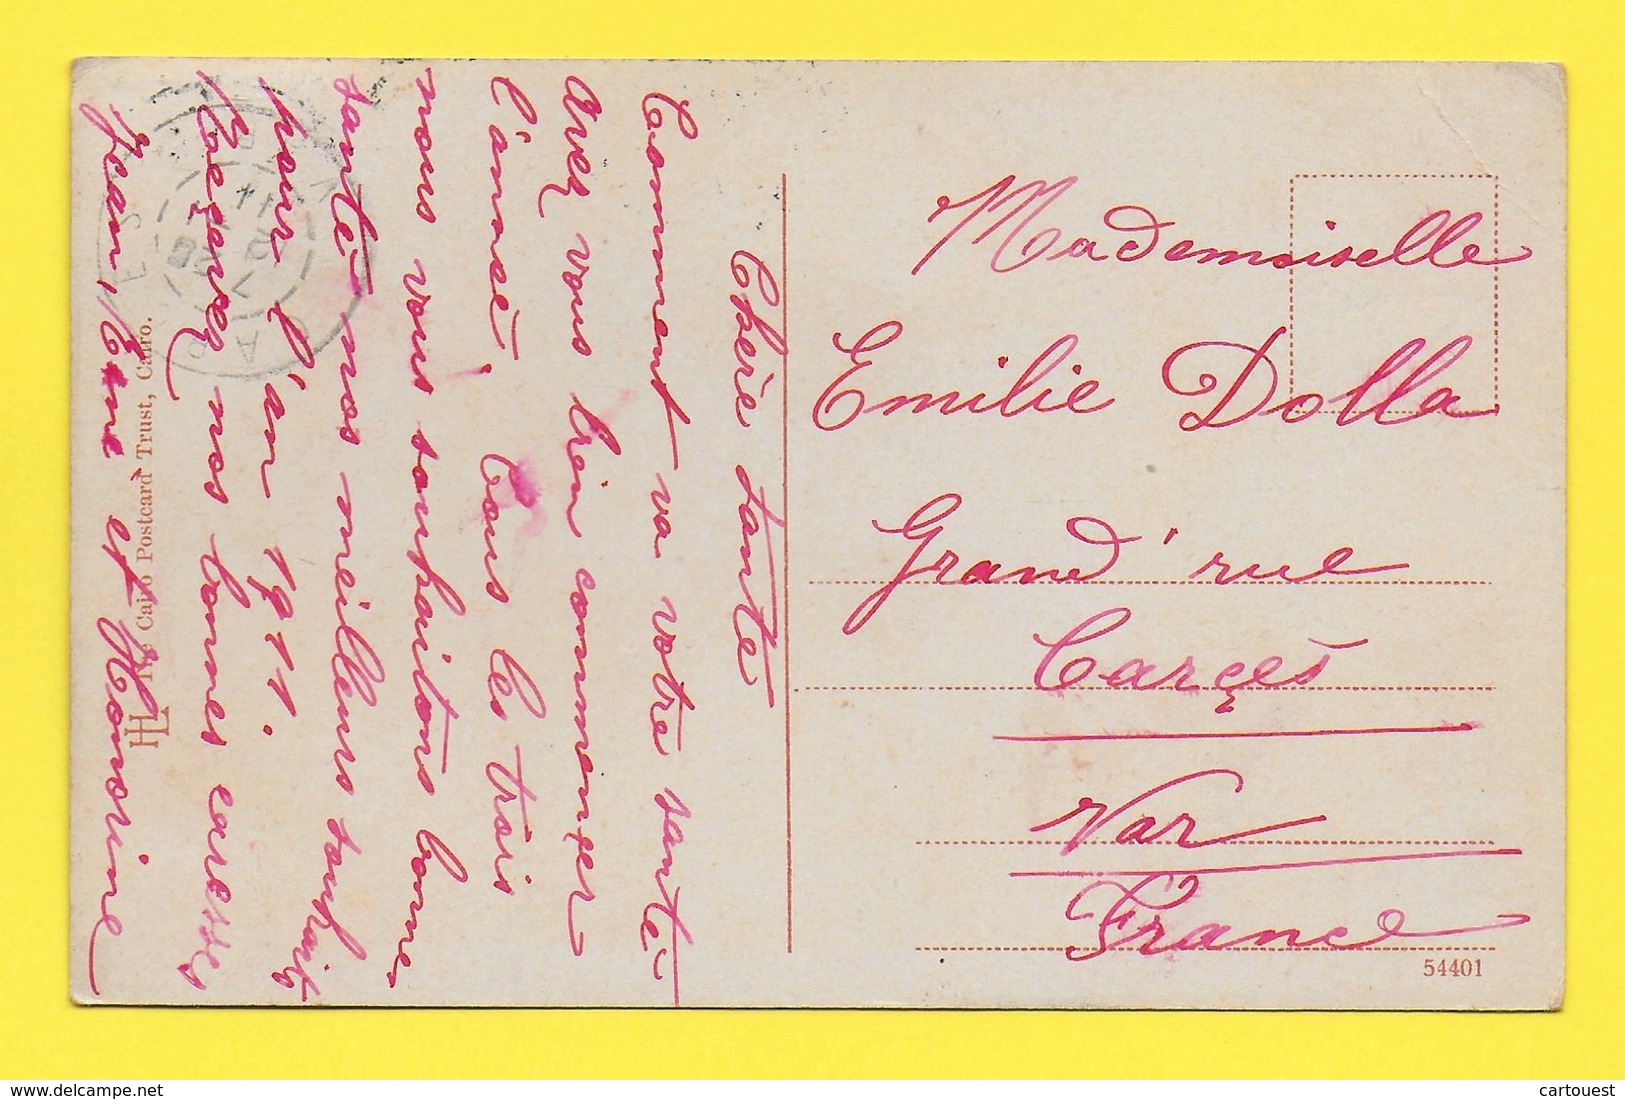 Chère tante
Comment va votre santé
avez vous bien commençer
l'année. Tous les trois
nous vous souhaitons bonne
santé nos meilleurs souhaits
pour l'an 1911.
Recevez nos bonnes caresses
Jean, Réné et Honorine
The Cairo Postcard Trust, Cairo.
Mademoiselle
Emilie Dolla
Grand' rue
Carçès
Var
France
54401
delcampe.net
cartouest